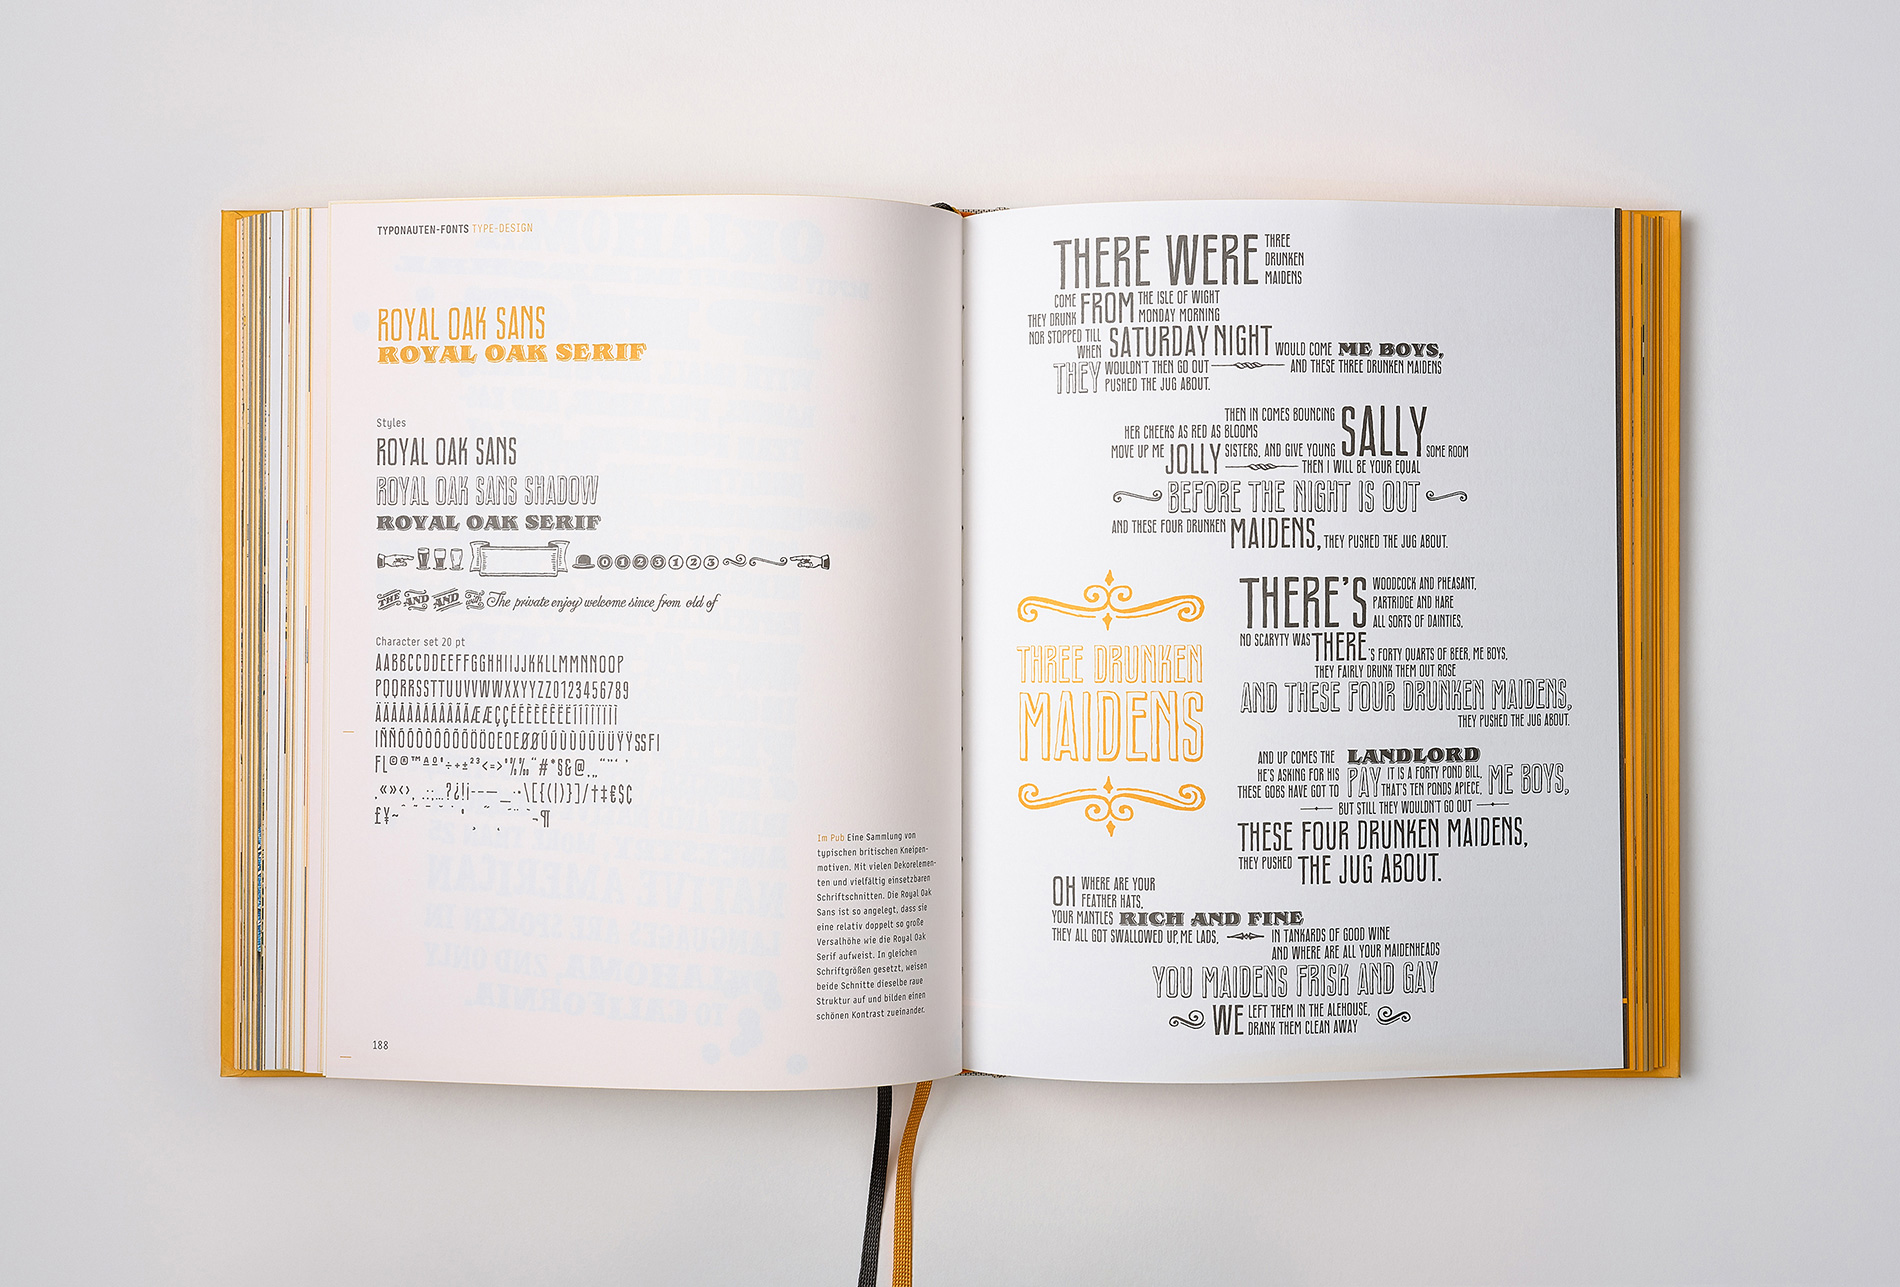 TYPONAUTEN-FONTS TYPE-DESIGN
ROYAL OAK SANS
ROYAL OAK SERIF
Styles
ROYAL OAK SANS
ROYAL OAK SANS SHADOW
ROYAL OAK SERIF
0 1 2 3 1 2 3
THE AND AND with The private enjoy welcome since from old of
Character set 20 pt
AABBCCDDEEFFGGHHIIJJKKLLMMNNOOP
PQQRRSSTTUUVVWWXXYYZZ0123456789
£¥~
Im Pub Eine Sammlung von
typischen britischen Kneipen-
motiven. Mit vielen Dekorelemen-
ten und vielfältig einsetzbaren
Schriftschnitten. Die Royal Oak
Sans ist so angelegt, dass sie
eine relativ doppelt so große
Versalhöhe wie die Royal Oak
Serif aufweist. In gleichen
Schriftgrößen gesetzt, weisen
beide Schnitte dieselbe raue
Struktur auf und bilden einen
schönen Kontrast zueinander.
188
THERE WERE THREE DRUNKEN MAIDENS
COME FROM THE ISLE OF WIGHT
THEY DRUNK MONDAY MORNING
NOR STOPPED TILL
WHEN SATURDAY NIGHT WOULD COME ME BOYS,
THEY WOULDN'T THEN GO OUT AND THESE THREE DRUNKEN MAIDENS
PUSHED THE JUG ABOUT.
THEN IN COMES BOUNCING SALLY
HER CHEEKS AS RED AS BLOOMS
MOVE UP ME JOLLY SISTERS, AND GIVE YOUNG SALLY SOME ROOM
THEN I WILL BE YOUR EQUAL
BEFORE THE NIGHT IS OUT
AND THESE FOUR DRUNKEN MAIDENS, THEY PUSHED THE JUG ABOUT.
THREE DRUNKEN
MAIDENS
THERE'S WOODCOCK AND PHEASANT,
PARTRIDGE AND HARE
ALL SORTS OF DAINTIES,
NO SCARYTY WAS THERE'S FORTY QUARTS OF BEER, ME BOYS,
THEY FAIRLY DRUNK THEM OUT ROSE
AND THESE FOUR DRUNKEN MAIDENS,
THEY PUSHED THE JUG ABOUT.
AND UP COMES THE LANDLORD
HE'S ASKING FOR HIS PAY IT IS A FORTY POND BILL, ME BOYS,
THESE GOBS HAVE GOT TO THAT'S TEN PONDS APIECE,
BUT STILL THEY WOULDN'T GO OUT
THESE FOUR DRUNKEN MAIDENS,
THEY PUSHED THE JUG ABOUT.
OH WHERE ARE YOUR
FEATHER HATS,
YOUR MANTLES RICH AND FINE
THEY ALL GOT SWALLOWED UP, ME LADS, IN TANKARDS OF GOOD WINE
AND WHERE ARE ALL YOUR MAIDENHEADS
YOU MAIDENS FRISK AND GAY
WE LEFT THEM IN THE ALEHOUSE,
DRANK THEM CLEAN AWAY